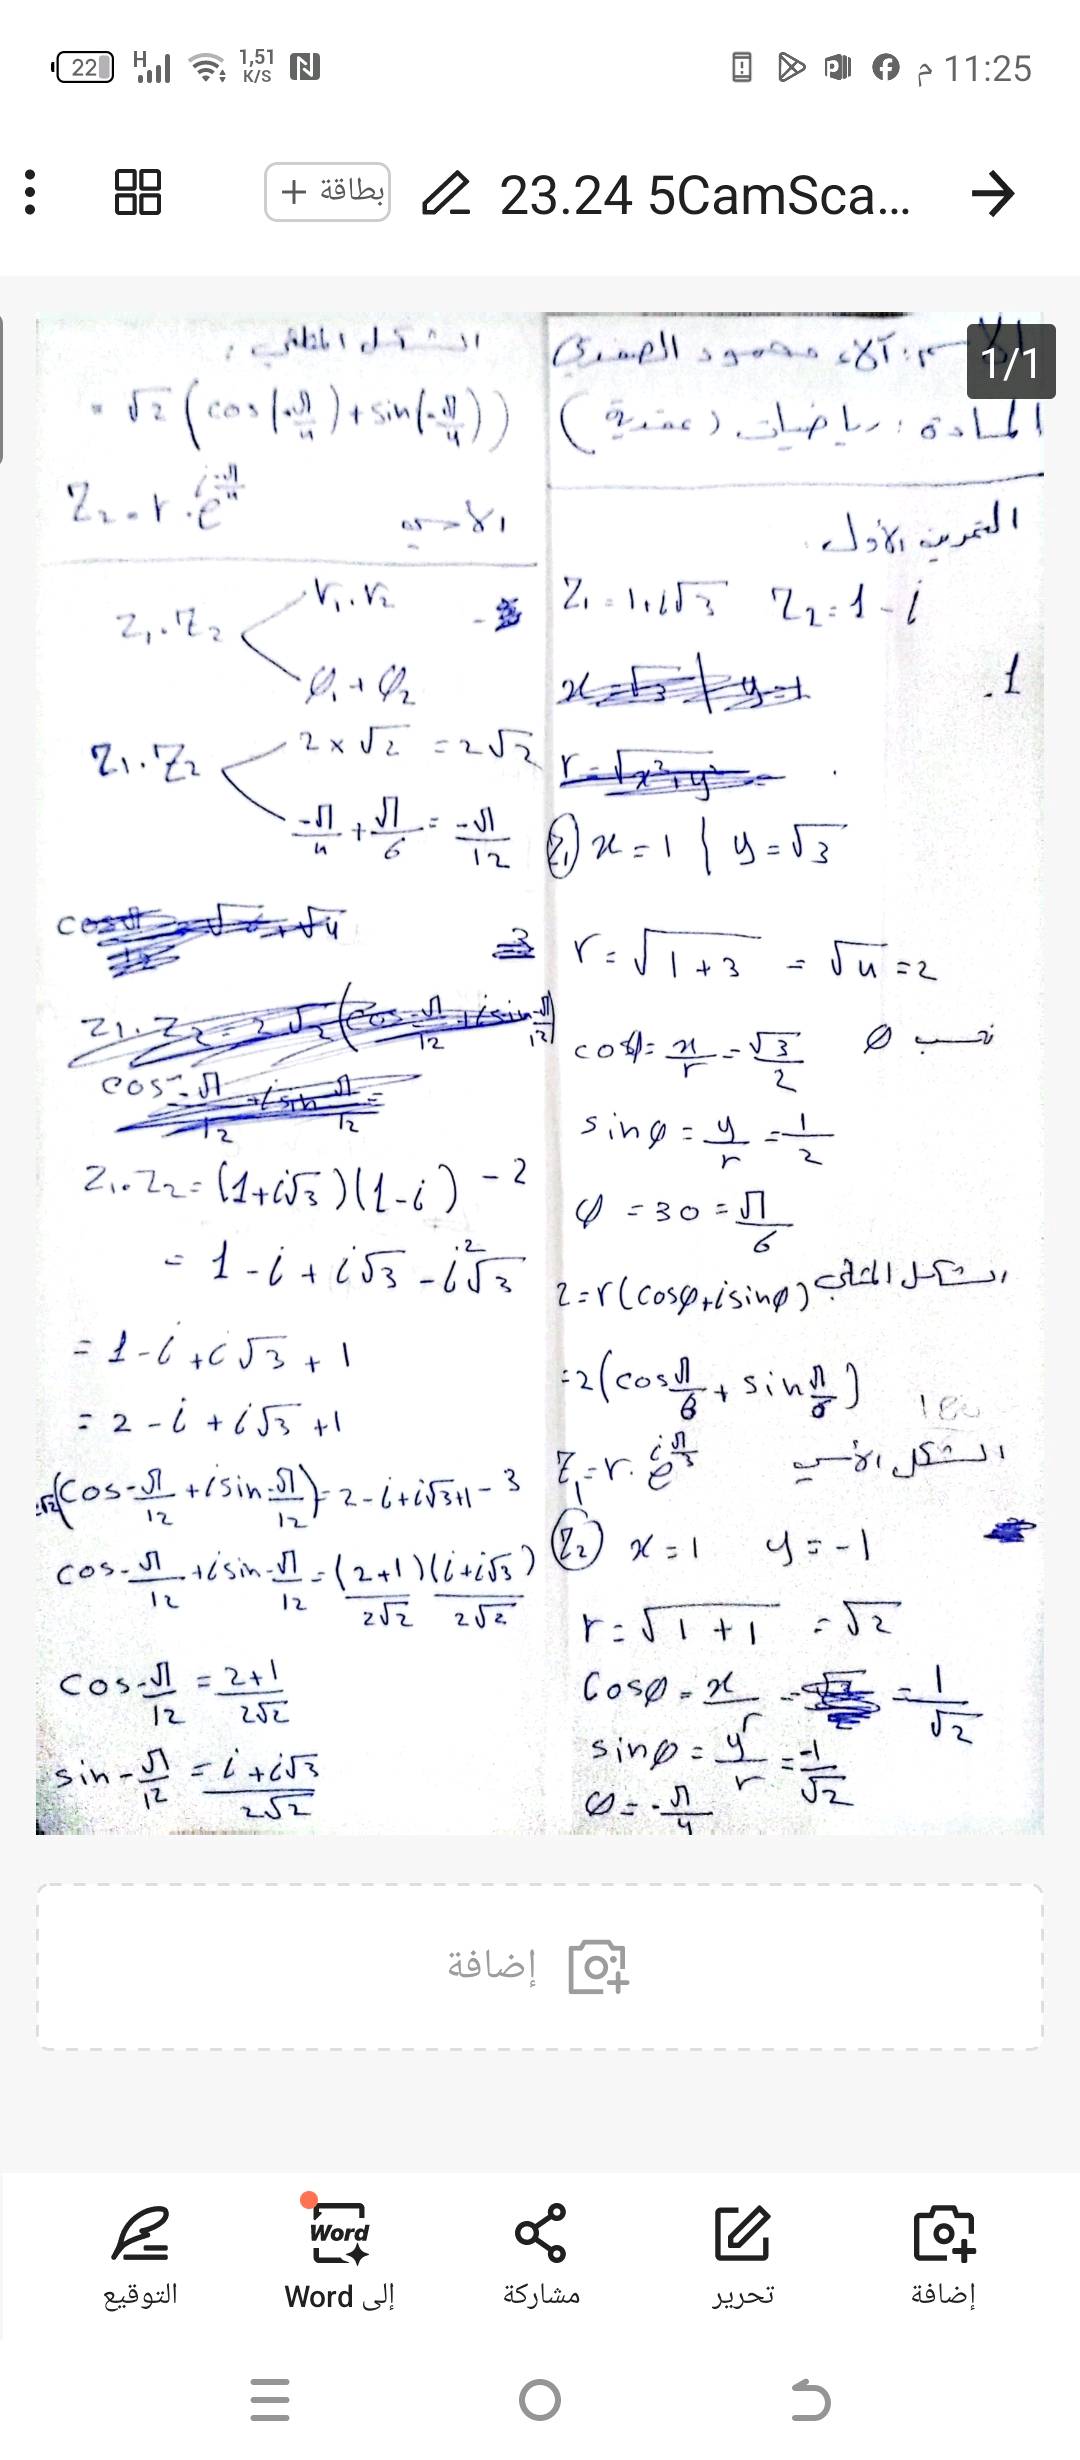 22 H 1,51 K/S N
11:25 م
23.24 5CamSca...
بطاقة +
1/1
الاسم: آلاء محمود
المادة: رياضيات (عقدية)
التمرين الأول
Z₁ = 1+i√3 Z₂ = 1 - i
1.
Z₁ x = 1 | y = √3
r = √1+3 = √4 = 2
نحسب φ
cosφ = x/r = √3/2
sinφ = y/r = 1/2
φ = 30 = π/6
الشكل المثلثي z = r(cosφ+isinφ)
= 2(cos π/6 + sin π/6)
الشكل الأسي
Z₁ = r.e^iπ/3
Z₂ x = 1 y = -1
r = √1+1 = √2
Cosφ = x/r = 1/√2
sinφ = y/r = -1/√2
φ = -π/4
الشكل المثلثي:
= √2 (cos(-π/4) + sin(-π/4))
الأسي
Z₂ = r.e^i-π/4
Z₁.Z₂ r₁.r₂
φ₁ + φ₂
Z₁.Z₂ 2 x √2 = 2√2
-π/4 + π/6 = -π/12
Z₁.Z₂ = (1+i√3)(1-i) - 2
= 1 - i + i√3 - i²√3
= 1 - i + i√3 + 1
= 2 - i + i√3 + 1
2√2(cos-π/12 + isin-π/12) = 2 - i + i√3+1 - 3
cos-π/12 + isin-π/12 = (2+1)/2√2 (i+i√3)/2√2
cos-π/12 = 2+1/2√2
sin-π/12 = i+i√3/2√2
إضافة
التوقيع
إلى Word
مشاركة
تحرير
إضافة